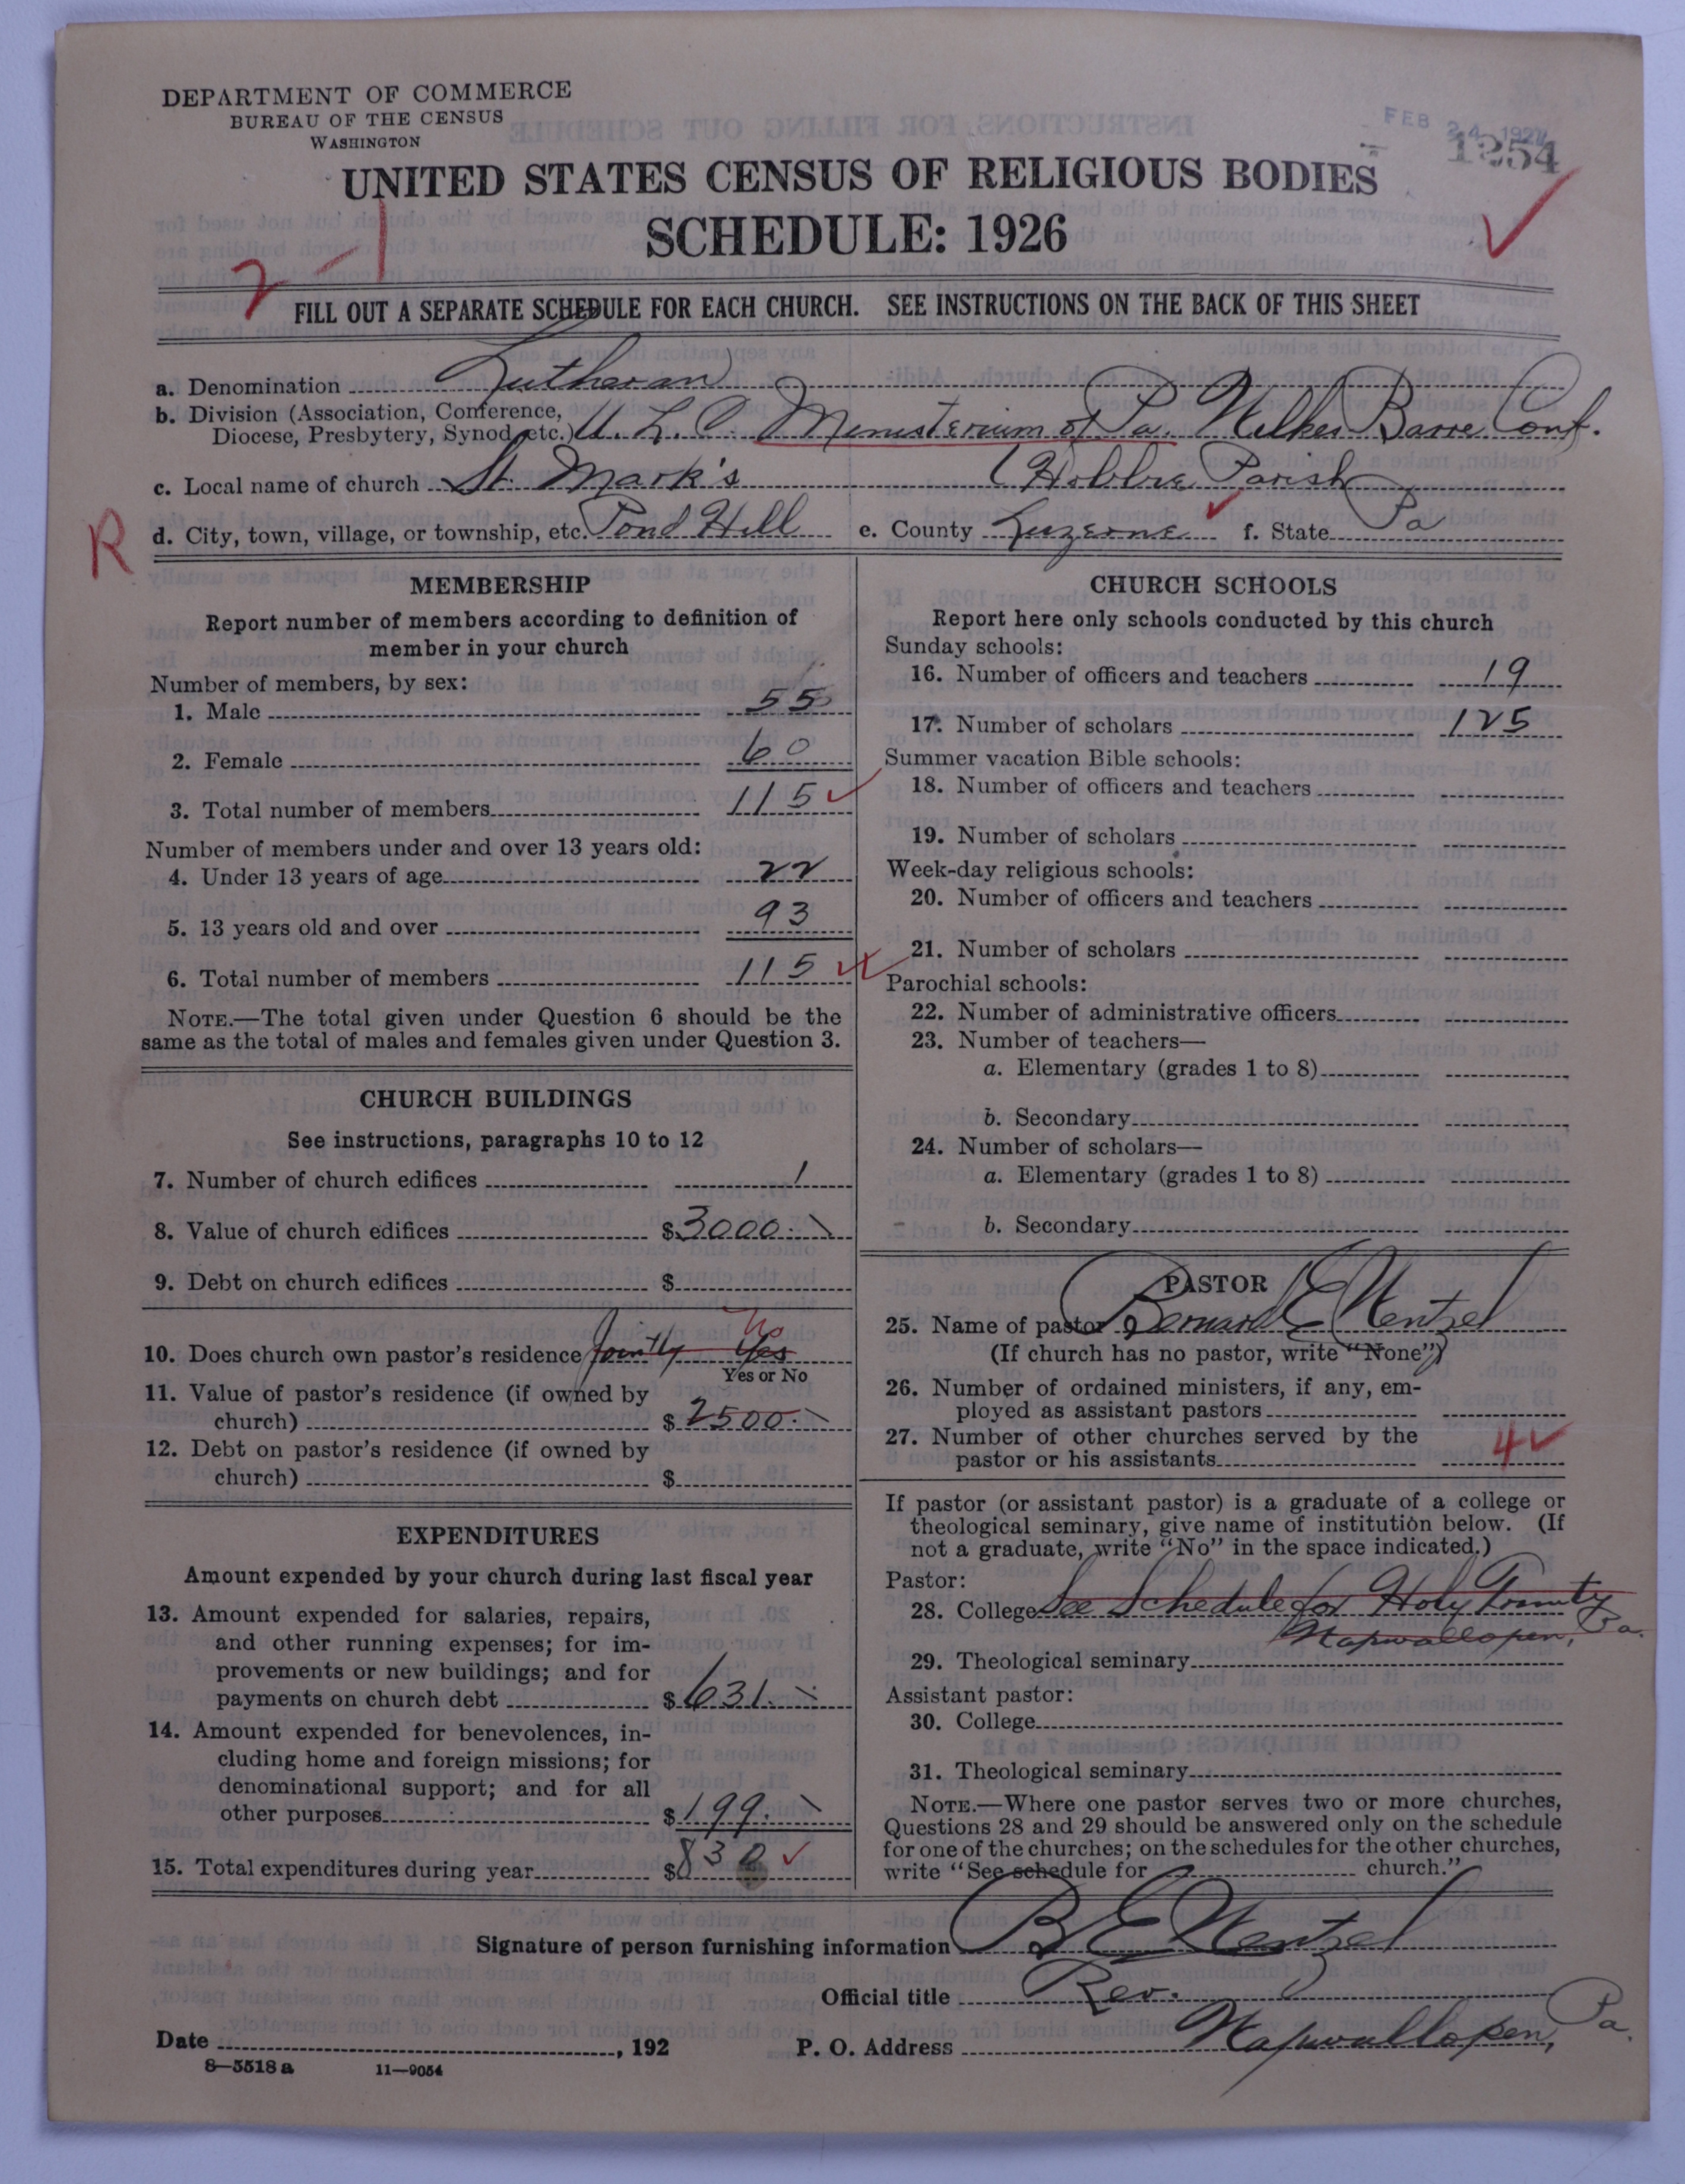 DEPARTMENT OF COMMERCE
BUREAU OF THE CENSUS
WASHINGTON
FEB 24 1927
1254
UNITED STATES CENSUS OF RELIGIOUS BODIES
SCHEDULE: 1926
2-1
FILL OUT A SEPARATE SCHEDULE FOR EACH CHURCH. SEE INSTRUCTIONS ON THE BACK OF THIS SHEET
a. Denomination Lutheran
b. Division (Association, Conference, Diocese, Presbytery, Synod, etc.) U. L. C. Ministerium of Pa. Wilkes Barre Conf.
c. Local name of church St. Mark's (Hobbie Parish
R
d. City, town, village, or township, etc. Pond Hill e. County Luzerne f. State Pa
MEMBERSHIP
Report number of members according to definition of
member in your church
Number of members, by sex:
1. Male 55
2. Female 60
3. Total number of members 115
Number of members under and over 13 years old:
4. Under 13 years of age 22
5. 13 years old and over 93
6. Total number of members 115
NOTE.—The total given under Question 6 should be the
same as the total of males and females given under Question 3.
CHURCH BUILDINGS
See instructions, paragraphs 10 to 12
7. Number of church edifices 1
8. Value of church edifices $3000.
9. Debt on church edifices $
10. Does church own pastor's residence Jointly Yes No
Yes or No
11. Value of pastor's residence (if owned by
church) $ 2500.
12. Debt on pastor's residence (if owned by
church) $
EXPENDITURES
Amount expended by your church during last fiscal year
13. Amount expended for salaries, repairs,
and other running expenses; for im-
provements or new buildings; and for
payments on church debt $ 631.
14. Amount expended for benevolences, in-
cluding home and foreign missions; for
denominational support; and for all
other purposes $ 199.
15. Total expenditures during year $830
CHURCH SCHOOLS
Report here only schools conducted by this church
Sunday schools:
16. Number of officers and teachers 19
17. Number of scholars 125
Summer vacation Bible schools:
18. Number of officers and teachers
19. Number of scholars
Week-day religious schools:
20. Number of officers and teachers
21. Number of scholars
Parochial schools:
22. Number of administrative officers
23. Number of teachers—
a. Elementary (grades 1 to 8)
b. Secondary
24. Number of scholars—
a. Elementary (grades 1 to 8)
b. Secondary
PASTOR
25. Name of pastor Bernard E Wentzel
(If church has no pastor, write "None")
26. Number of ordained ministers, if any, em-
ployed as assistant pastors
27. Number of other churches served by the
pastor or his assistants 4
If pastor (or assistant pastor) is a graduate of a college or
theological seminary, give name of institution below. (If
not a graduate, write "No" in the space indicated.)
Pastor:
28. College See Schedule for Holy Trinity
Wapwallopen, Pa.
29. Theological seminary
Assistant pastor:
30. College
31. Theological seminary
NOTE.—Where one pastor serves two or more churches,
Questions 28 and 29 should be answered only on the schedule
for one of the churches; on the schedules for the other churches,
write "See schedule for church."
Signature of person furnishing information B E Wentzel
Official title Rev.
Date , 192 P. O. Address Wapwallopen, Pa.
8—5518 a 11—9054